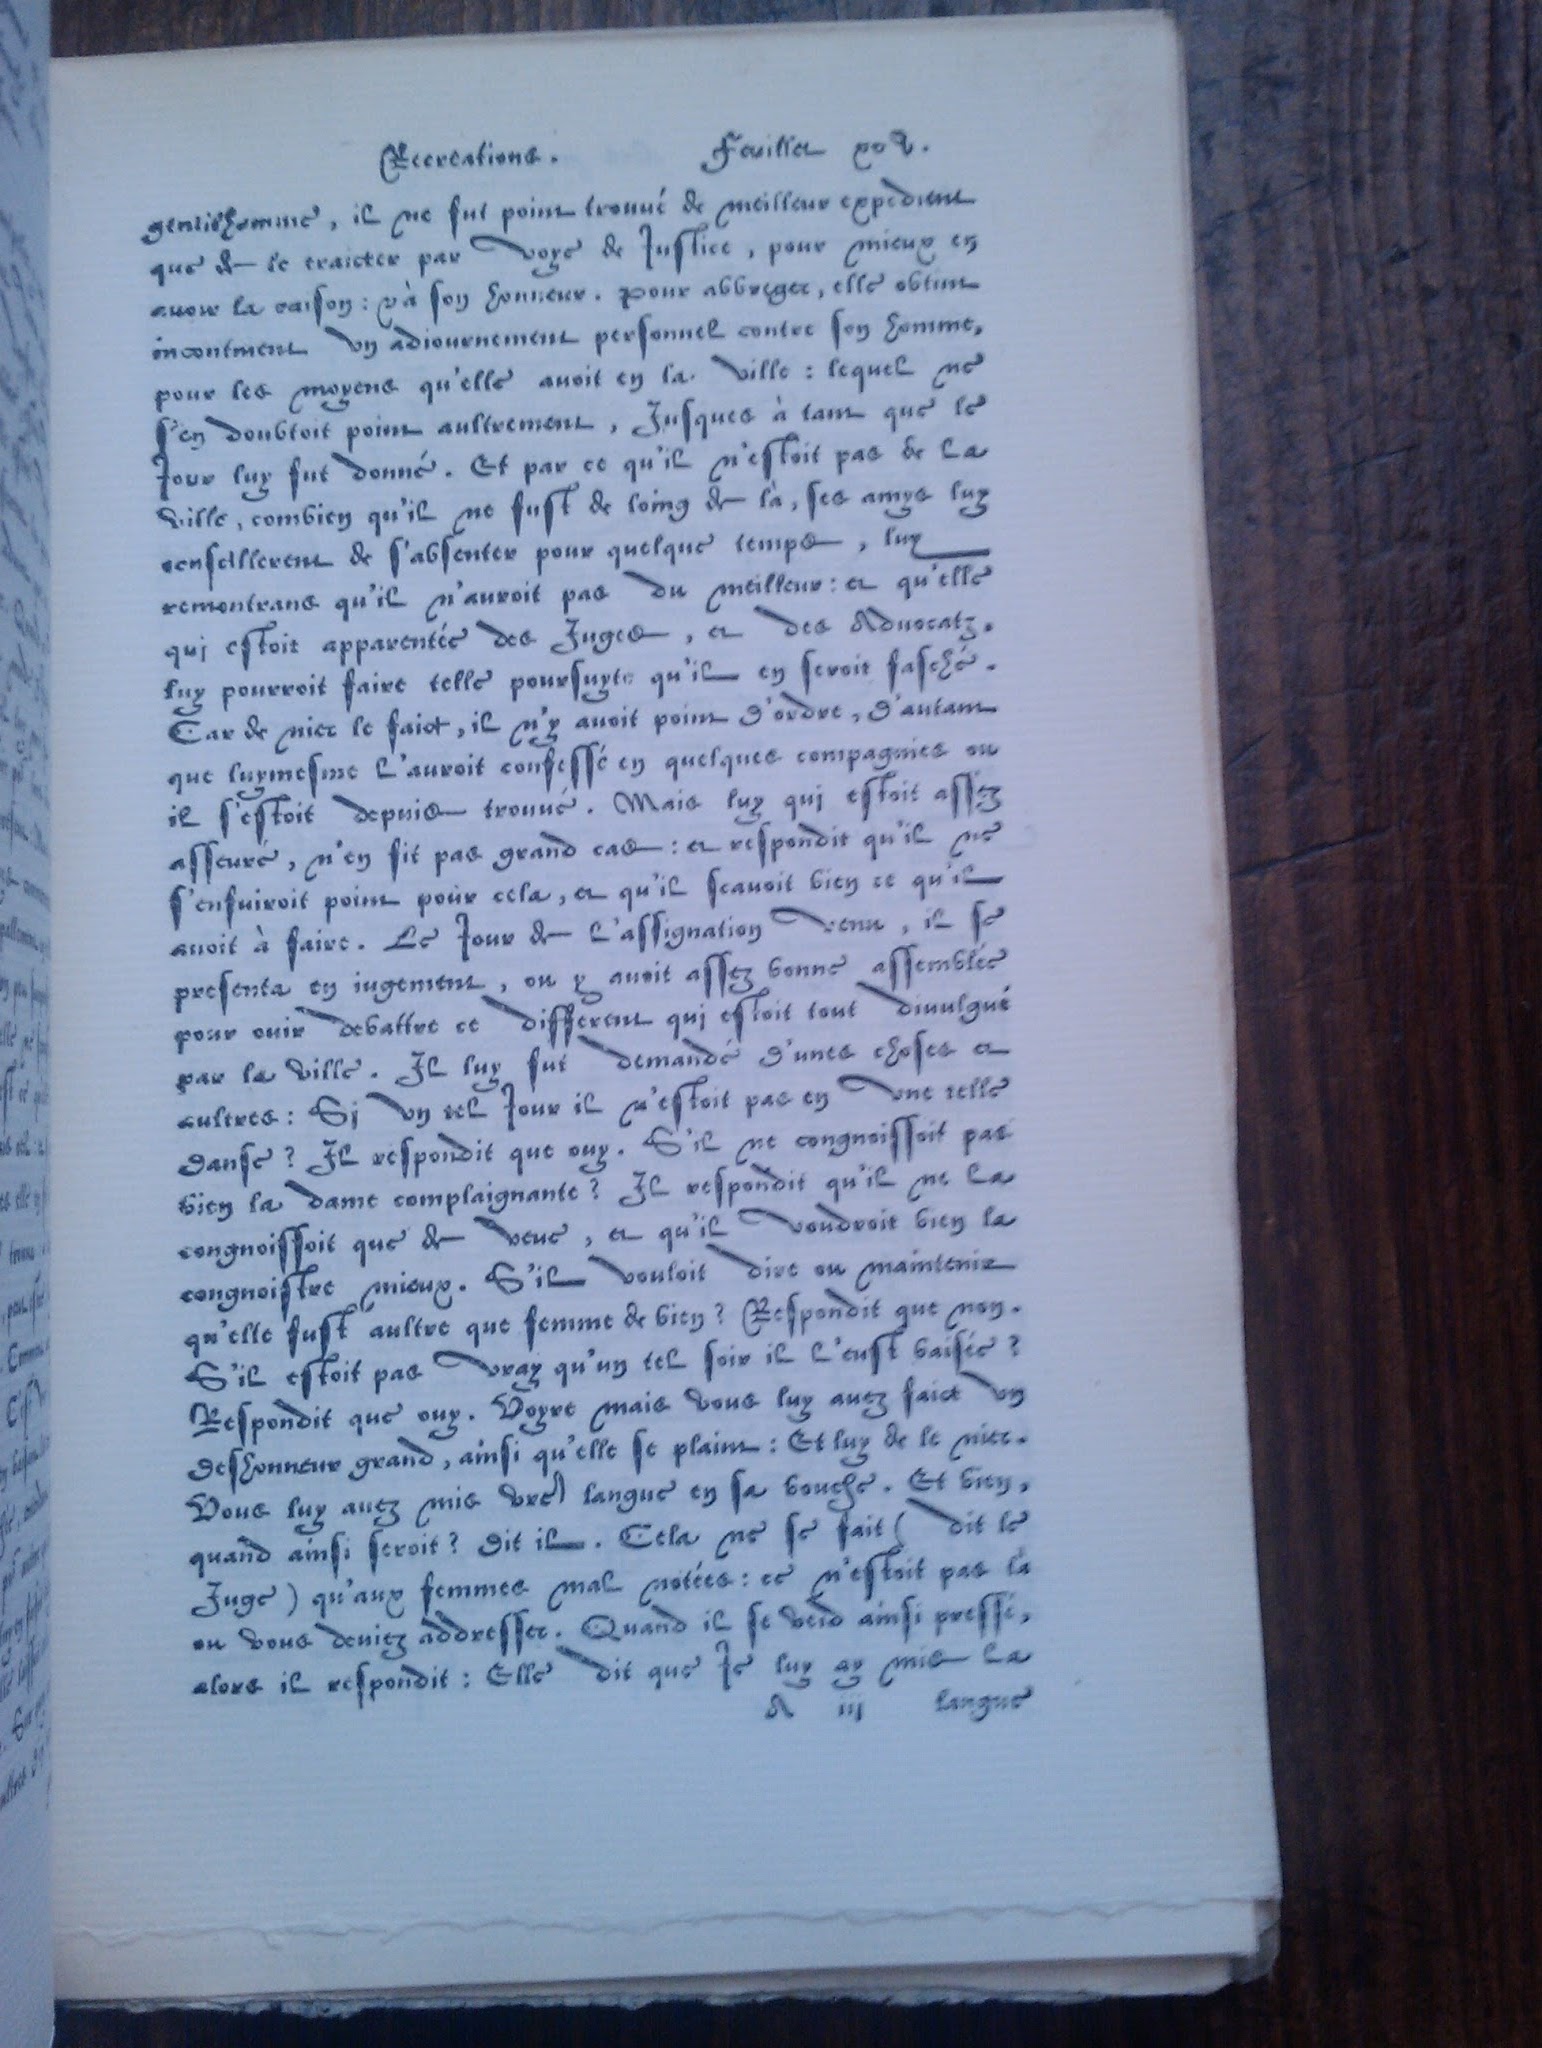 Recreations. Feuillet xxv.
gentilhomme, il ne fut point trouué de meilleur expedient
que de le traicter par voye de Justice, pour mieux en
auoir la raison: & à son honneur. Pour abbreger, elle obtint
incontinent vn adiournement personnel contre son homme,
pour les moyens qu'elle auoit en la ville: lequel ne
s'en doubtoit point aultrement, Jusques à tant que le
Jour luy fut donné. Et par ce qu'il n'estoit pas de la
ville, combien qu'il ne fust de loing de là, ses amys luy
conseillerent de s'absenter pour quelque temps, luy
remontrans qu'il n'auroit pas du meilleur: et qu'elle
qui estoit apparentée des Juges, et des Aduocatz.
luy pourroit faire telle poursuyte qu'il en seroit fasché.
Car de nier le faict, il n'y auoit point d'ordre, d'autant
que luymesme l'auroit confessé en quelques compagnies ou
il s'estoit depuis trouué. Mais luy qui estoit assez
asseuré, n'en fit pas grand cas: et respondit qu'il ne
s'enfuiroit point pour cela, et qu'il scauoit bien ce qu'il
auoit à faire. Le Jour de l'assignation venu, il se
presenta en iugement, ou y auoit assez bonne assemblée
pour ouir debattre ce different qui estoit tout diuulgué
par la ville. Il luy fut demandé d'unes choses et
aultres: Si vn tel Jour il n'estoit pas en vne telle
danse? Il respondit que ouy. S'il ne congnoissoit pas
bien la dame complaignante? Il respondit qu'il ne la
congnoissoit que de veue, et qu'il voudroit bien la
congnoistre mieux. S'il vouloit dire ou maintenir
qu'elle fust aultre que femme de bien? Respondit que non.
S'il estoit pas vray qu'un tel soir il l'eust baisée?
Respondit que ouy. Voyre mais vous luy auez faict vn
deshonneur grand, ainsi qu'elle se plaint: Et luy de le nier.
Vous luy auez mis vre langue en sa bouche. Et bien,
quand ainsi seroit? dit il. Cela ne se fait (dit le
Juge) qu'aux femmes mal notées: ce n'estoit pas là
ou vous deuiez addresser. Quand il se veid ainsi pressé,
alors il respondit: Elle dit que Je luy ay mis la
iij langue